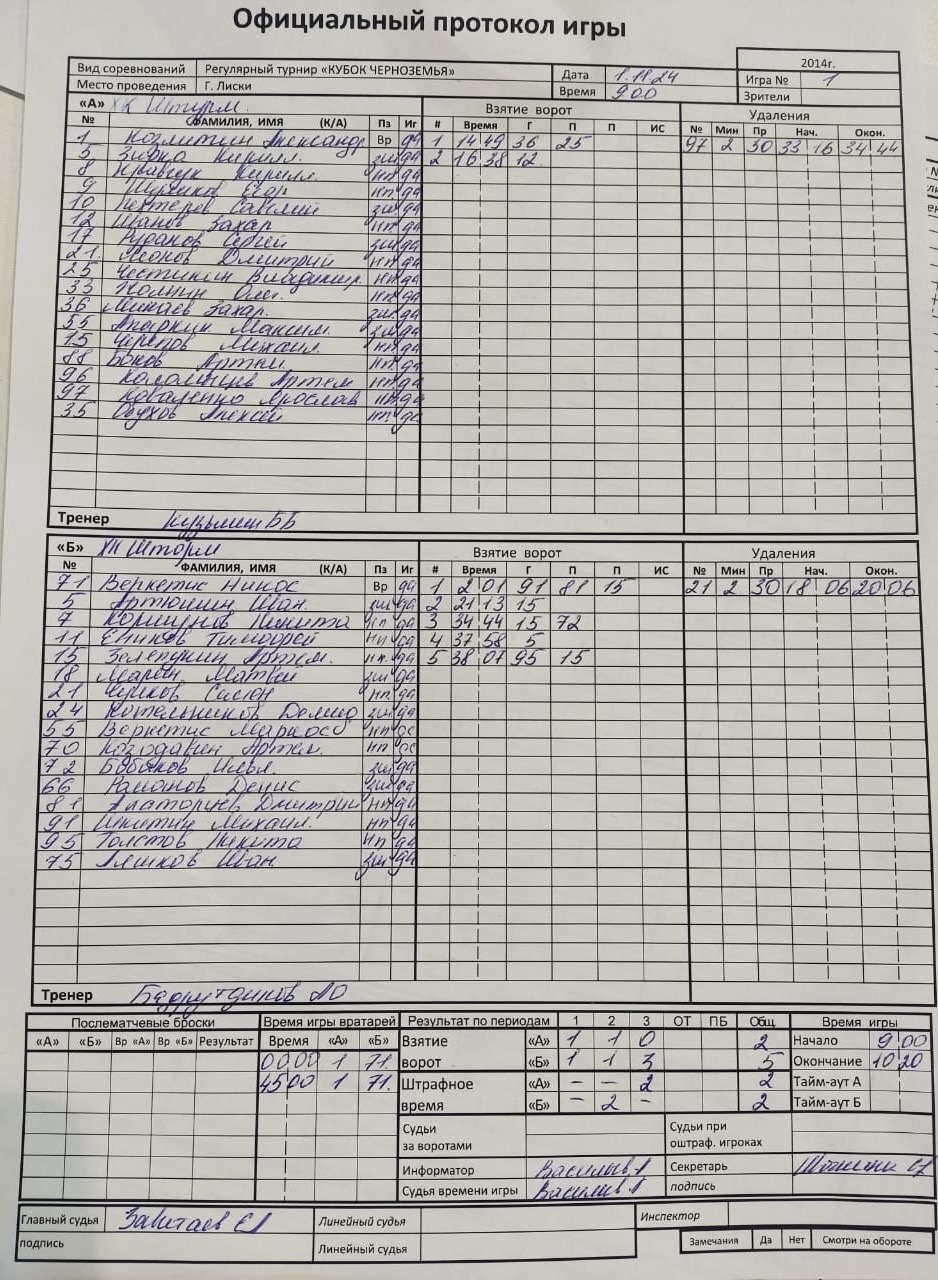 Официальный протокол игры
2014г.
Вид соревнований Регулярный турнир «КУБОК ЧЕРНОЗЕМЬЯ» Дата 1.11.24 Игра № 1
Место проведения Г. Лиски Время 9 00 Зрители
«А» ХК Штурм. Взятие ворот Удаления
№ ФАМИЛИЯ, ИМЯ (К/А) Пз Иг # Время Г П П ИС № Мин Пр Нач. Окон.
1 Козмитин Александр Вр да 1 14 49 36 25 97 2 30 33 16 34 44
5 Зидка Кирилл. зщ да 2 16 38 12
8 Кравчук Кирилл. нп да
9 Егор нп да
10 Нестеров Савелий зщ да
12 Иванов Захар нп да
17 Рубанов Сергей зщ да
21. Леонов Дмитрий нп да
25 Честикин Владимир нп да
33 Олег. нп да
36 Минаев Захар. зщ да
55 Апаркин Максим. зщ да
15 Черепов Михаил. нп да
88 Боков Артём. нп да
96 Коломыцев Артем нп да
97 Коваленко Ярослав нп да
35 Обухов Алексей нп да
Тренер Кузьмин ББ
«Б» ХК Шторм Взятие ворот Удаления
№ ФАМИЛИЯ, ИМЯ (К/А) Пз Иг # Время Г П П ИС № Мин Пр Нач. Окон.
71 Веркетис Никос Вр да 1 2 01 91 81 15 21 2 30 18 06 20 06
5 Артюшин Иван. зщ да 2 21 13 15
7 Коршунов Никита нп да 3 34 44 15 72
11 Еников Тимофей нп да 4 37 58 5
15 Зелепукин Артем. нп да 5 38 07 95 15
18 Марин Матвей зщ да
21 Чуйков Семён нп да
24 Котельников Демид зщ да
55 Веркетис Маркос нп да
70 Козодавин Артем. нп да
72 Бобяков Илья. зщ да
66 Рамонов Денис зщ да
81 Алаторцев Дмитрий нп да
91 Никитин Михаил. нп да
95 Толстов Никита нп да
75 Ляшков Иван зщ да
Тренер Бедрутдинов АО
Послематчевые броски Время игры вратарей Результат по периодам 1 2 3 ОТ ПБ Общ Время игры
«А» «Б» Вр «А» Вр «Б» Результат Время «А» «Б» Взятие «А» 1 1 0 2 Начало 9 00
00 00 1 71. ворот «Б» 1 1 3 5 Окончание 10 20
45 00 1 71. Штрафное «А» – – 2 2 Тайм-аут А
время «Б» – 2 – 2 Тайм-аут Б
Судьи за воротами Судьи при оштраф. игроках
Информатор Васильев А Секретарь
Судья времени игры Васильев А подпись
Главный судья Завитаев СА Линейный судья Инспектор
подпись Линейный судья Замечания Да Нет Смотри на обороте